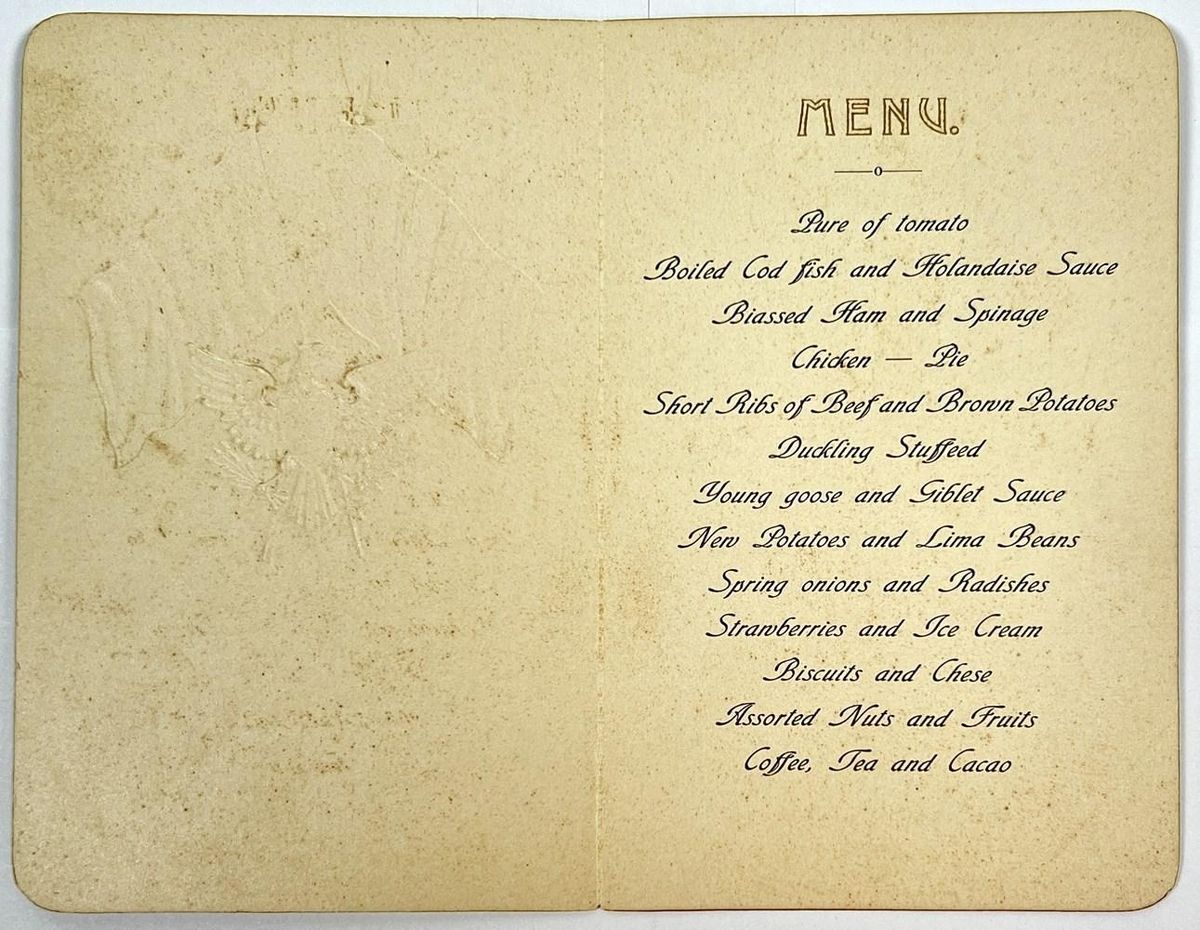 MENU.
Pure of tomato
Boiled Cod fish and Holandaise Sauce
Biassed Ham and Spinage
Chicken — Pie
Short Ribs of Beef and Brown Potatoes
Duckling Stuffeed
Young goose and Giblet Sauce
New Potatoes and Lima Beans
Spring onions and Radishes
Strawberries and Ice Cream
Biscuits and Chese
Assorted Nuts and Fruits
Coffee, Tea and Cacao